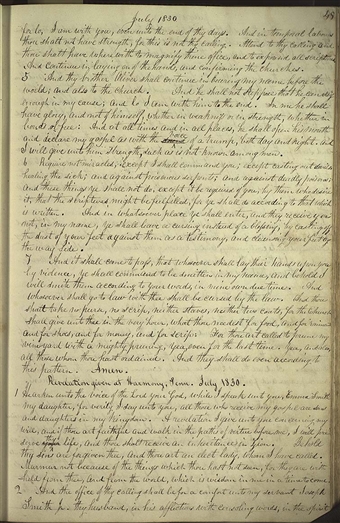 July 1830
for lo, I am with you, even unto the end of thy days. And in temporal labors
thou shalt not have strength, for this is not thy calling. Attend to thy calling and
thou shalt have wherewith to magnify thine office, and to expound all scriptures.
And continue in laying on of the hands, and confirming the churches.
5 And thy brother Oliver shall continue in bearing my name before the
world; and also to the church. And he shall not suppose that he can say
enough in my cause; and lo I am with him to the end. In me he shall
have glory, and not of himself, whether in weakness or in strength, whether in
bonds or free: And at all times and in all places, he shall open his mouth
and declare my gospel as with the voice of a trump, both day and night. And
I will give unto him strength such as is not known among men.
6 Require not miracles, except I shall command you; except casting out devils;
healing the sick; and against poisonous serpents; and against deadly poisons;
and these things ye shall not do, except it be required of you, by them who desire
it, that the scriptures might be fulfilled, for ye shall do according to that which
is written. And in whatsoever place ye shall enter, and they receive you
not, in my name, ye shall leave a cursing instead of a blessing, by casting off
the dust of your feet against them as a testimony, and cleansing your feet by
the way side.
7 And it shall come to pass, that whosoever shall lay their hands upon you
by violence, ye shall command to be smitten in my name, and behold I
will smite them according to your words, in mine own due time. And
whosoever shall go to law with thee shall be cursed by the law. And thou
shalt take no purse, nor scrip, neither staves, neither two coats, for the church
shall give unto thee in the very hour, what thou needest for food, and for raiment
and for shoes, and for money, and for scrip: For thou art called to prune my
vineyard with a mighty pruning, yea, even for the last time. Yea, and also,
all those whom thou hast ordained. And they shall do even according to
this pattern. Amen.
Revelation given at Harmony, Penn. July 1830.
1 Hearken unto the voice of the Lord your God, while I speak unto you, Emma Smith
my daughter, for verily I say unto you, all those who receive my gospel are sons
and daughters in my kingdom. A revelation I give unto you concerning my
will, and if thou art faithful and walk in the paths of virtue before me, I will pre-
serve thy life, and thou shalt receive an inheritance in Zion. Behold
thy sins are forgiven thee, and thou art an elect lady, whom I have called.
Murmur not because of the things which thou hast not seen, for they are with-
held from thee, and from the world, which is wisdom in me in a time to come.
2 And the office of thy calling shall be for a comfort unto my servant Joseph
Smith jr. thy husband, in his afflictions with consoling words, in the spirit